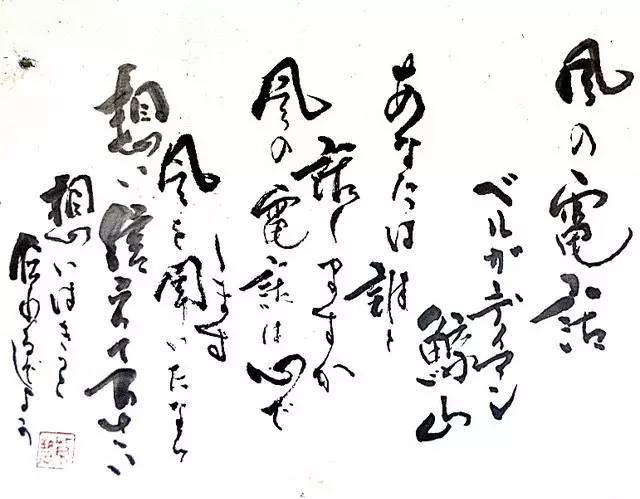 風の電話
ベルガディアン
鯨山
あなたは誰と
話しますか
風の電話は心で
します
風を聞いたなら
想い伝えて下さい
想いはきっと
届くでしょう